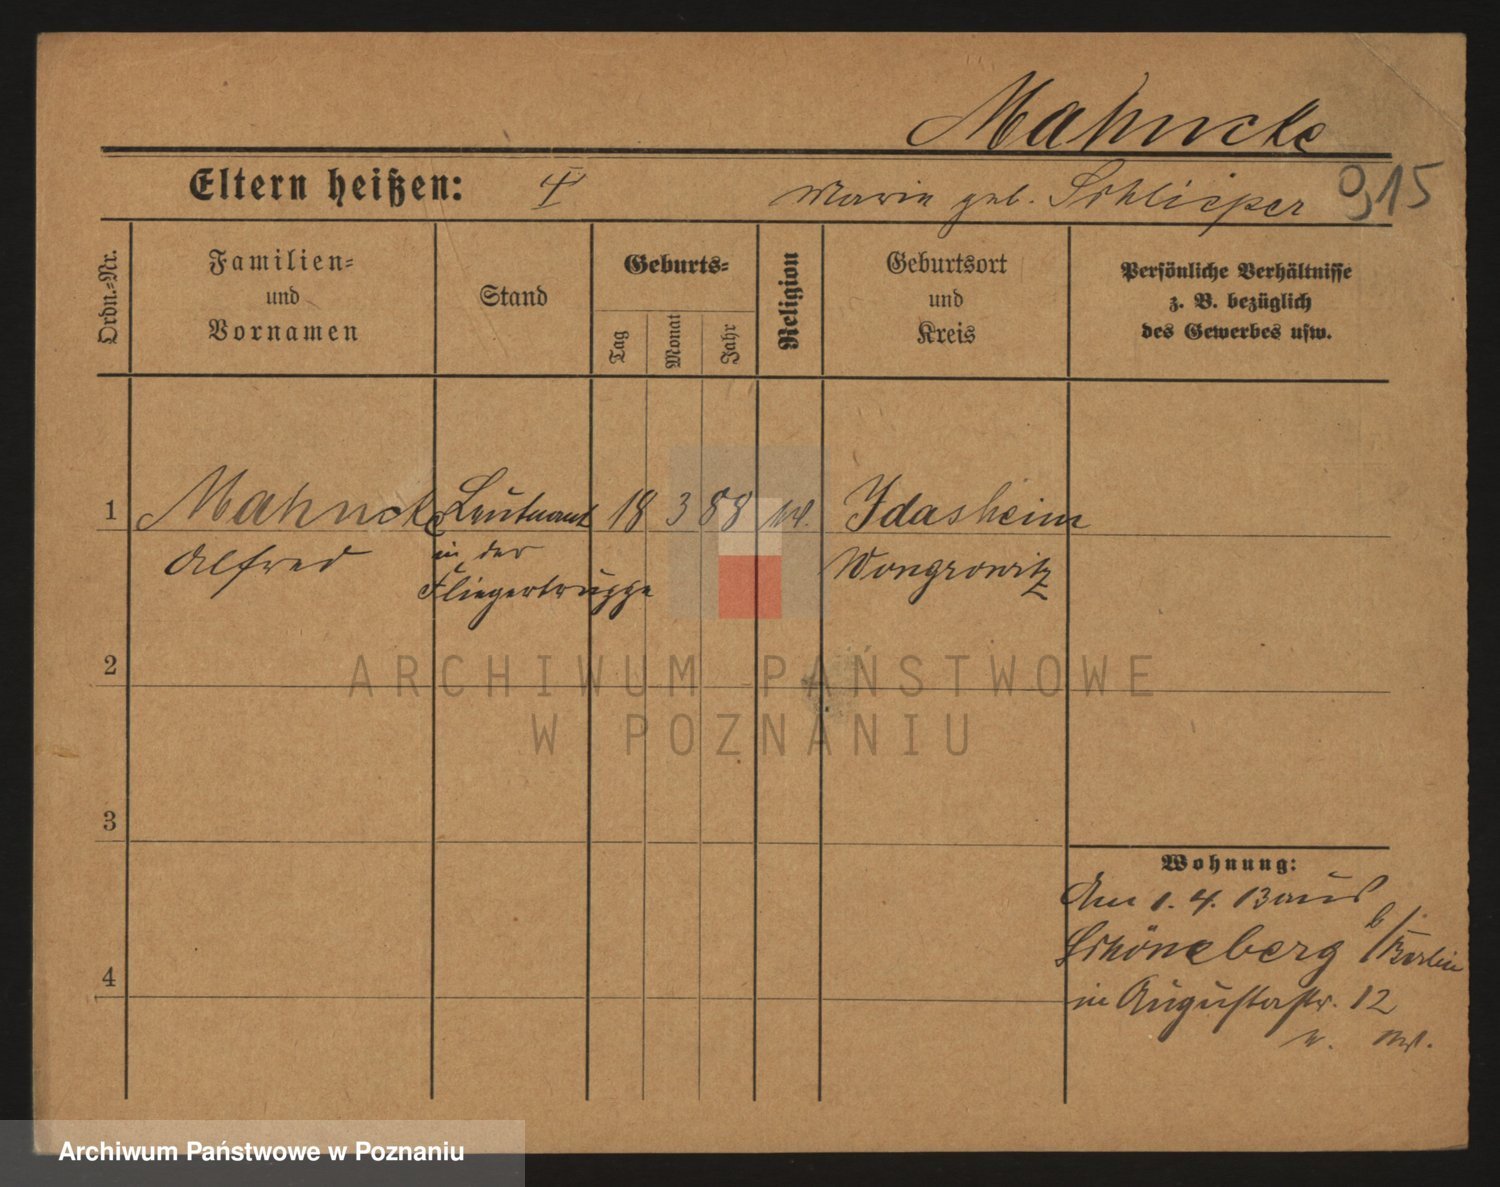 Mahncke
Eltern heißen:
Marie geb. Schlieper
9,15
Ordn.-Nr.
Familien-
und
Vornamen
Stand
Geburts-
Tag
Monat
Jahr
Religion
Geburtsort
und
Kreis
Persönliche Verhältnisse
z. B. bezüglich
des Gewerbes usw.
1
Mahncke Leutnant 18 3 88 Idasheim
Alfred in der Wongrowitz
Fliegertruppe
2
ARCHIWUM PAŃSTWOWE
W POZNANIU
3
Wohnung:
Am 1. 4. 13 aus
Schöneberg b/. Berlin
4
in Augustastr. 12
Archiwum Państwowe w Poznaniu